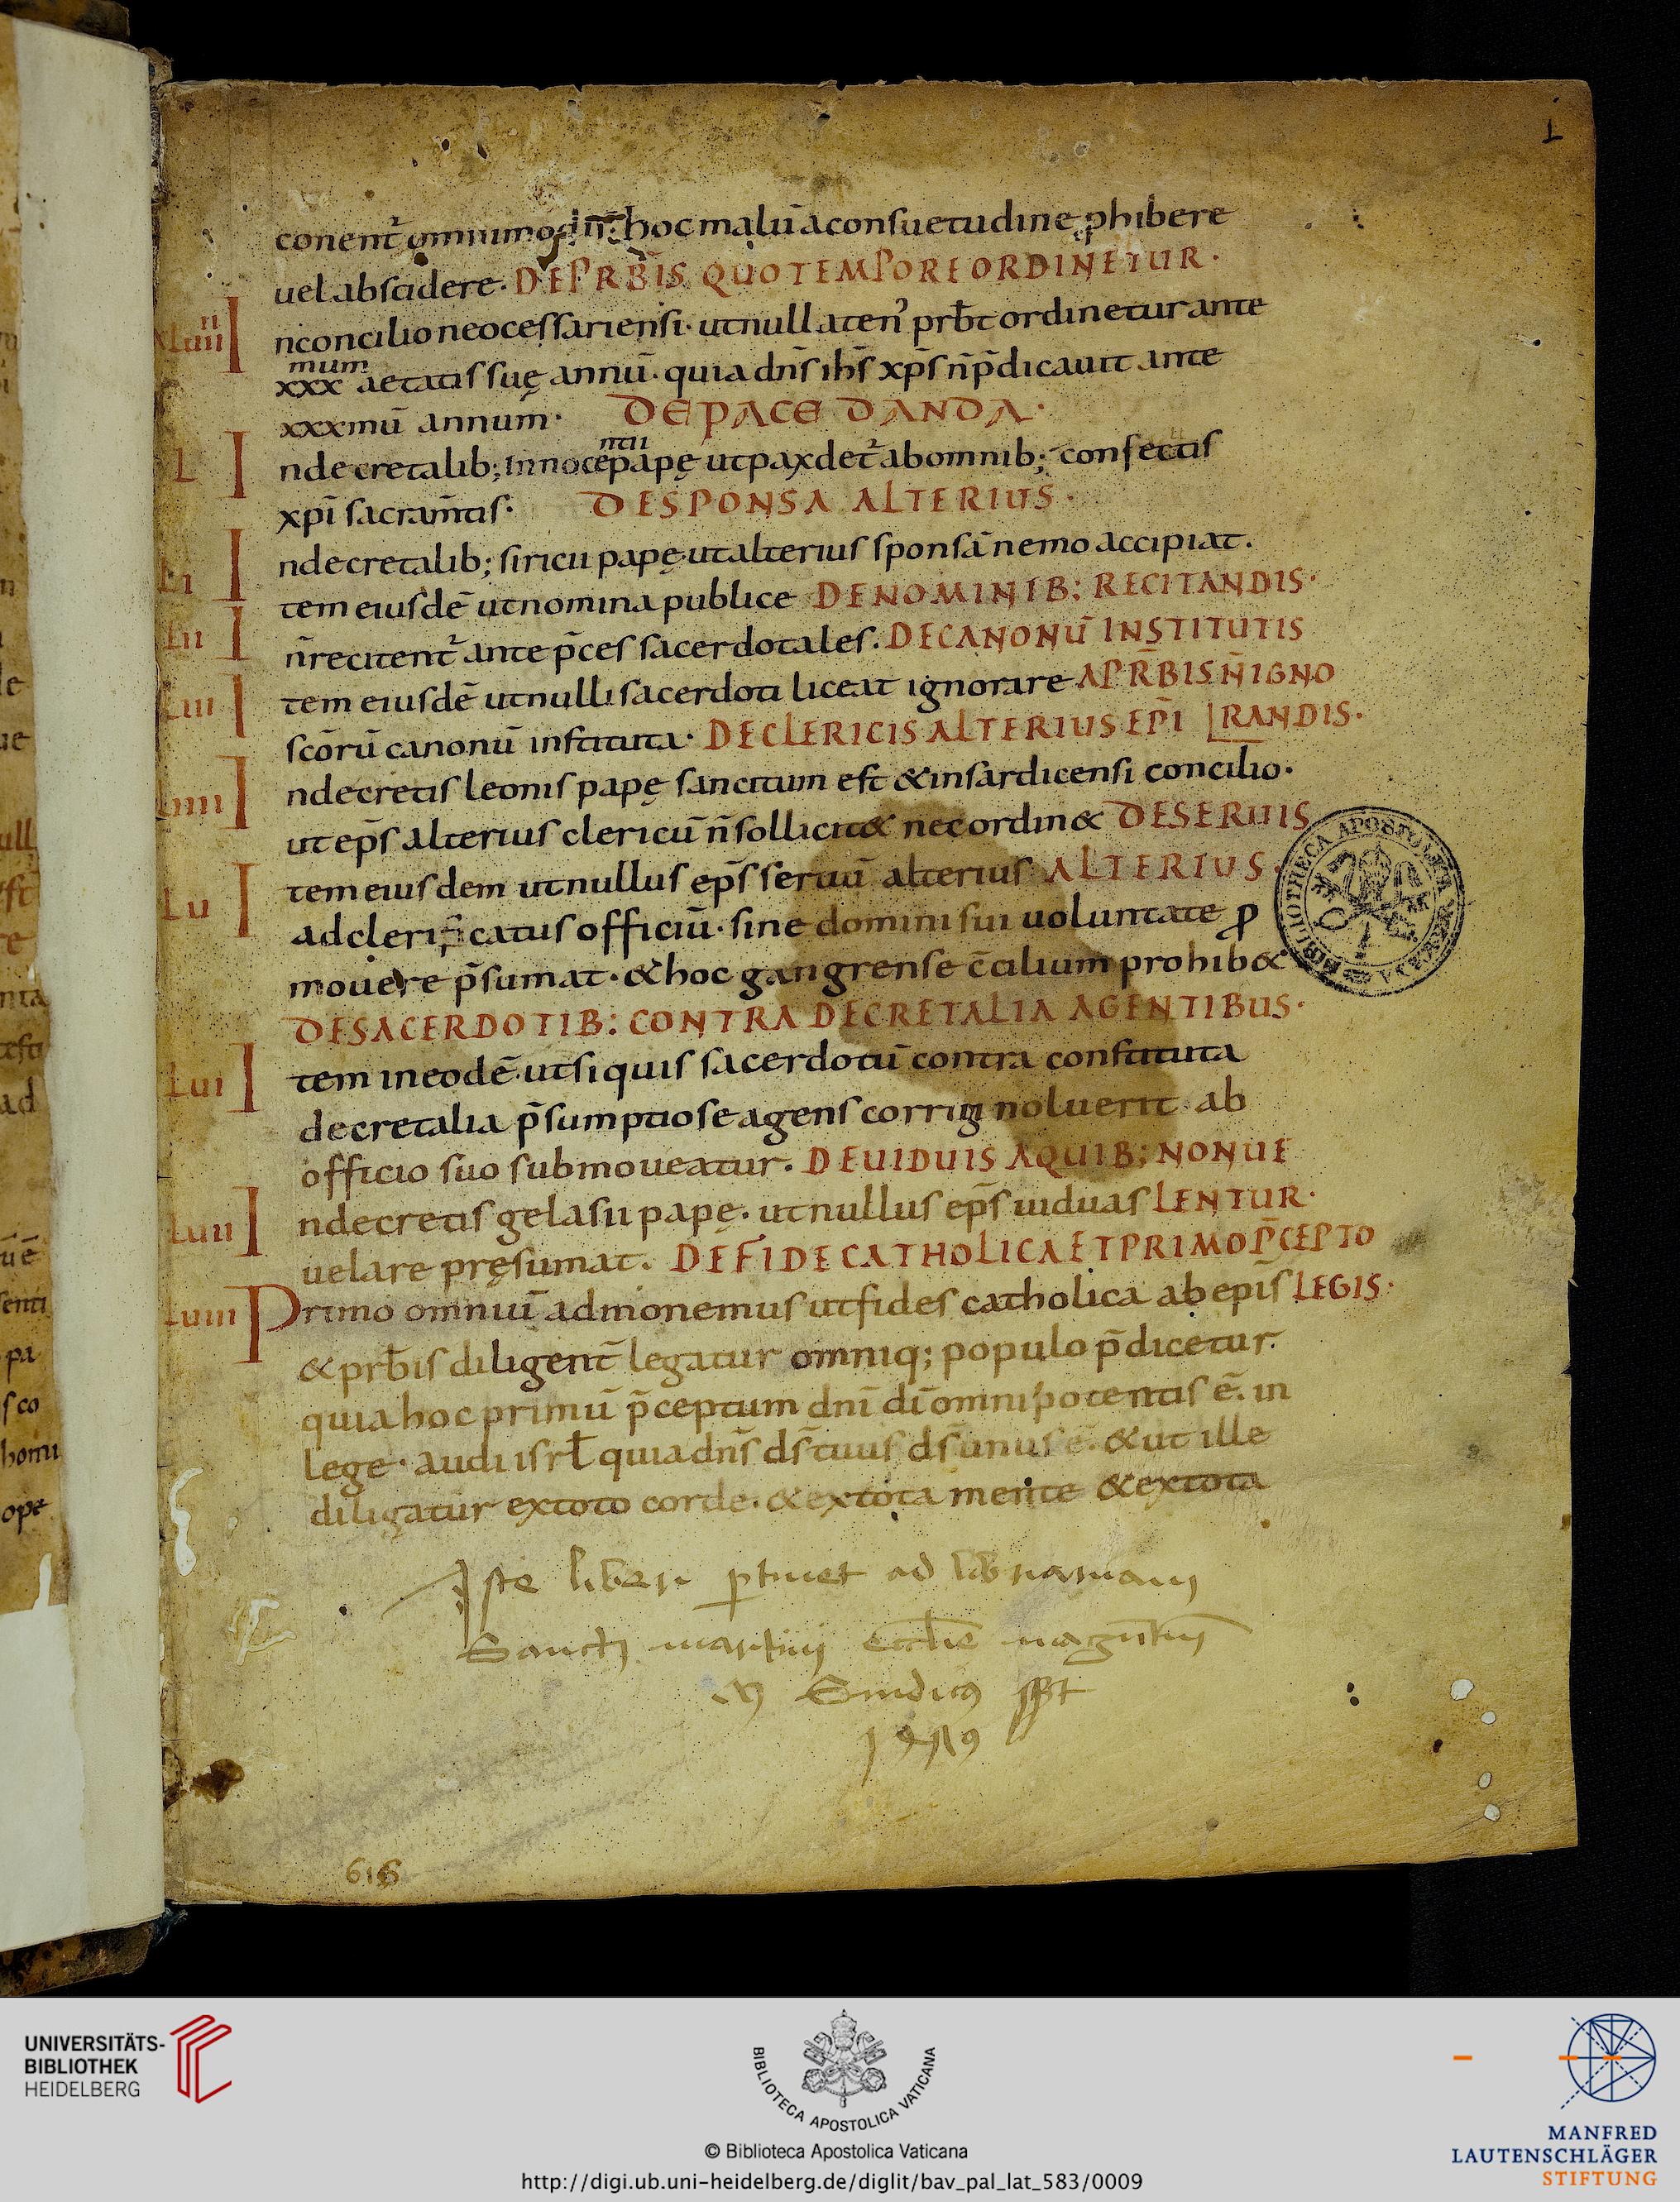 1
conent᷑ omnimodis: hoc malū a consuetudine ꝓhibere
uel abscidere. DE PRB̄IS QUO TEMPORE ORDINETUR.
xLuiiii In concilio neocessariensi. ut nullaten' prb̄t ordinetur ante
xxx mum aetatis suę annū. quia dn̄s ih̄s xp̄s n̄ p̄dicauit ante
xxxmū annum. DE PACE DANDA.
L In decretalib; innocentii papę ut pax det᷑ ab omnib; confectis
xp̄i sacram̄tis. DE SPONSA ALTERIUS.
Li In decretalib; siricii papę ut alterius sponsā nemo accipiat.
Lii Item eiusdē ut nomina publice DE NOMINIB; RECITANDIS.
n̄ recitent᷑ ante p̄ces sacerdotales. DE CANONŪ INSTITUTIS
Liii Item eiusdē ut nulli sacerdoti liceat ignorare A PR̄BIS N̄ IGNO
sc̄orū canonū instituta. DE CLERICIS ALTERIUS EP̄I RANDIS.
Liiii In decretis leonis papę sancitum est & in sardicensi concilio.
ut ep̄s alterius clericū n̄ sollicit& nec ordin& DE SERUIS
Lu Item eiusdem ut nullus ep̄s seruū alterius ALTERIUS.
ad clericatus officiū. sine domini sui uoluntate ꝓ
mouere p̄sumat. & hoc gangrense c̄cilium prohib&
DE SACERDOTIB; CONTRA DECRETALIA AGENTIBUS.
Lui Item in eodē ut si quis sacerdotū contra constituta
decretalia p̄sumptiose agens corrigi noluerit. ab
officio suo submoueatur. DE UIDUIS A QUIB; NON UE
Luii In decretis gelasii papę. ut nullus ep̄s uiduas LENTUR.
uelare pręsumat. DE FIDE CATHOLICA ET PRIMO P̄CEPTO
Luiii Primo omniū admonemus ut fides catholica ab epis̄ LEGIS.
& prb̄is diligent̄ legatur omniq; populo p̄dicetur.
quia hoc primū p̄ceptum dn̄i dī omnipotentis ē. in
lege. audi isrł quia dn̄s ds̄ tuus ds̄ unus ē. & ut ille
diligatur ex toto corde. & ex tota mente & ex tota
Iste liber ꝑtinet ad librariam
Sancti martini eccl̄ie magūtin̄
M Sindicꝯ sspt
1479
616
BIBLIOTHECA APOSTOLICA VATICANA
UNIVERSITÄTS-
BIBLIOTHEK
HEIDELBERG
BIBLIOTECA APOSTOLICA VATICANA
© Biblioteca Apostolica Vaticana
http://digi.ub.uni-heidelberg.de/diglit/bav_pal_lat_583/0009
MANFRED
LAUTENSCHLÄGER
STIFTUNG